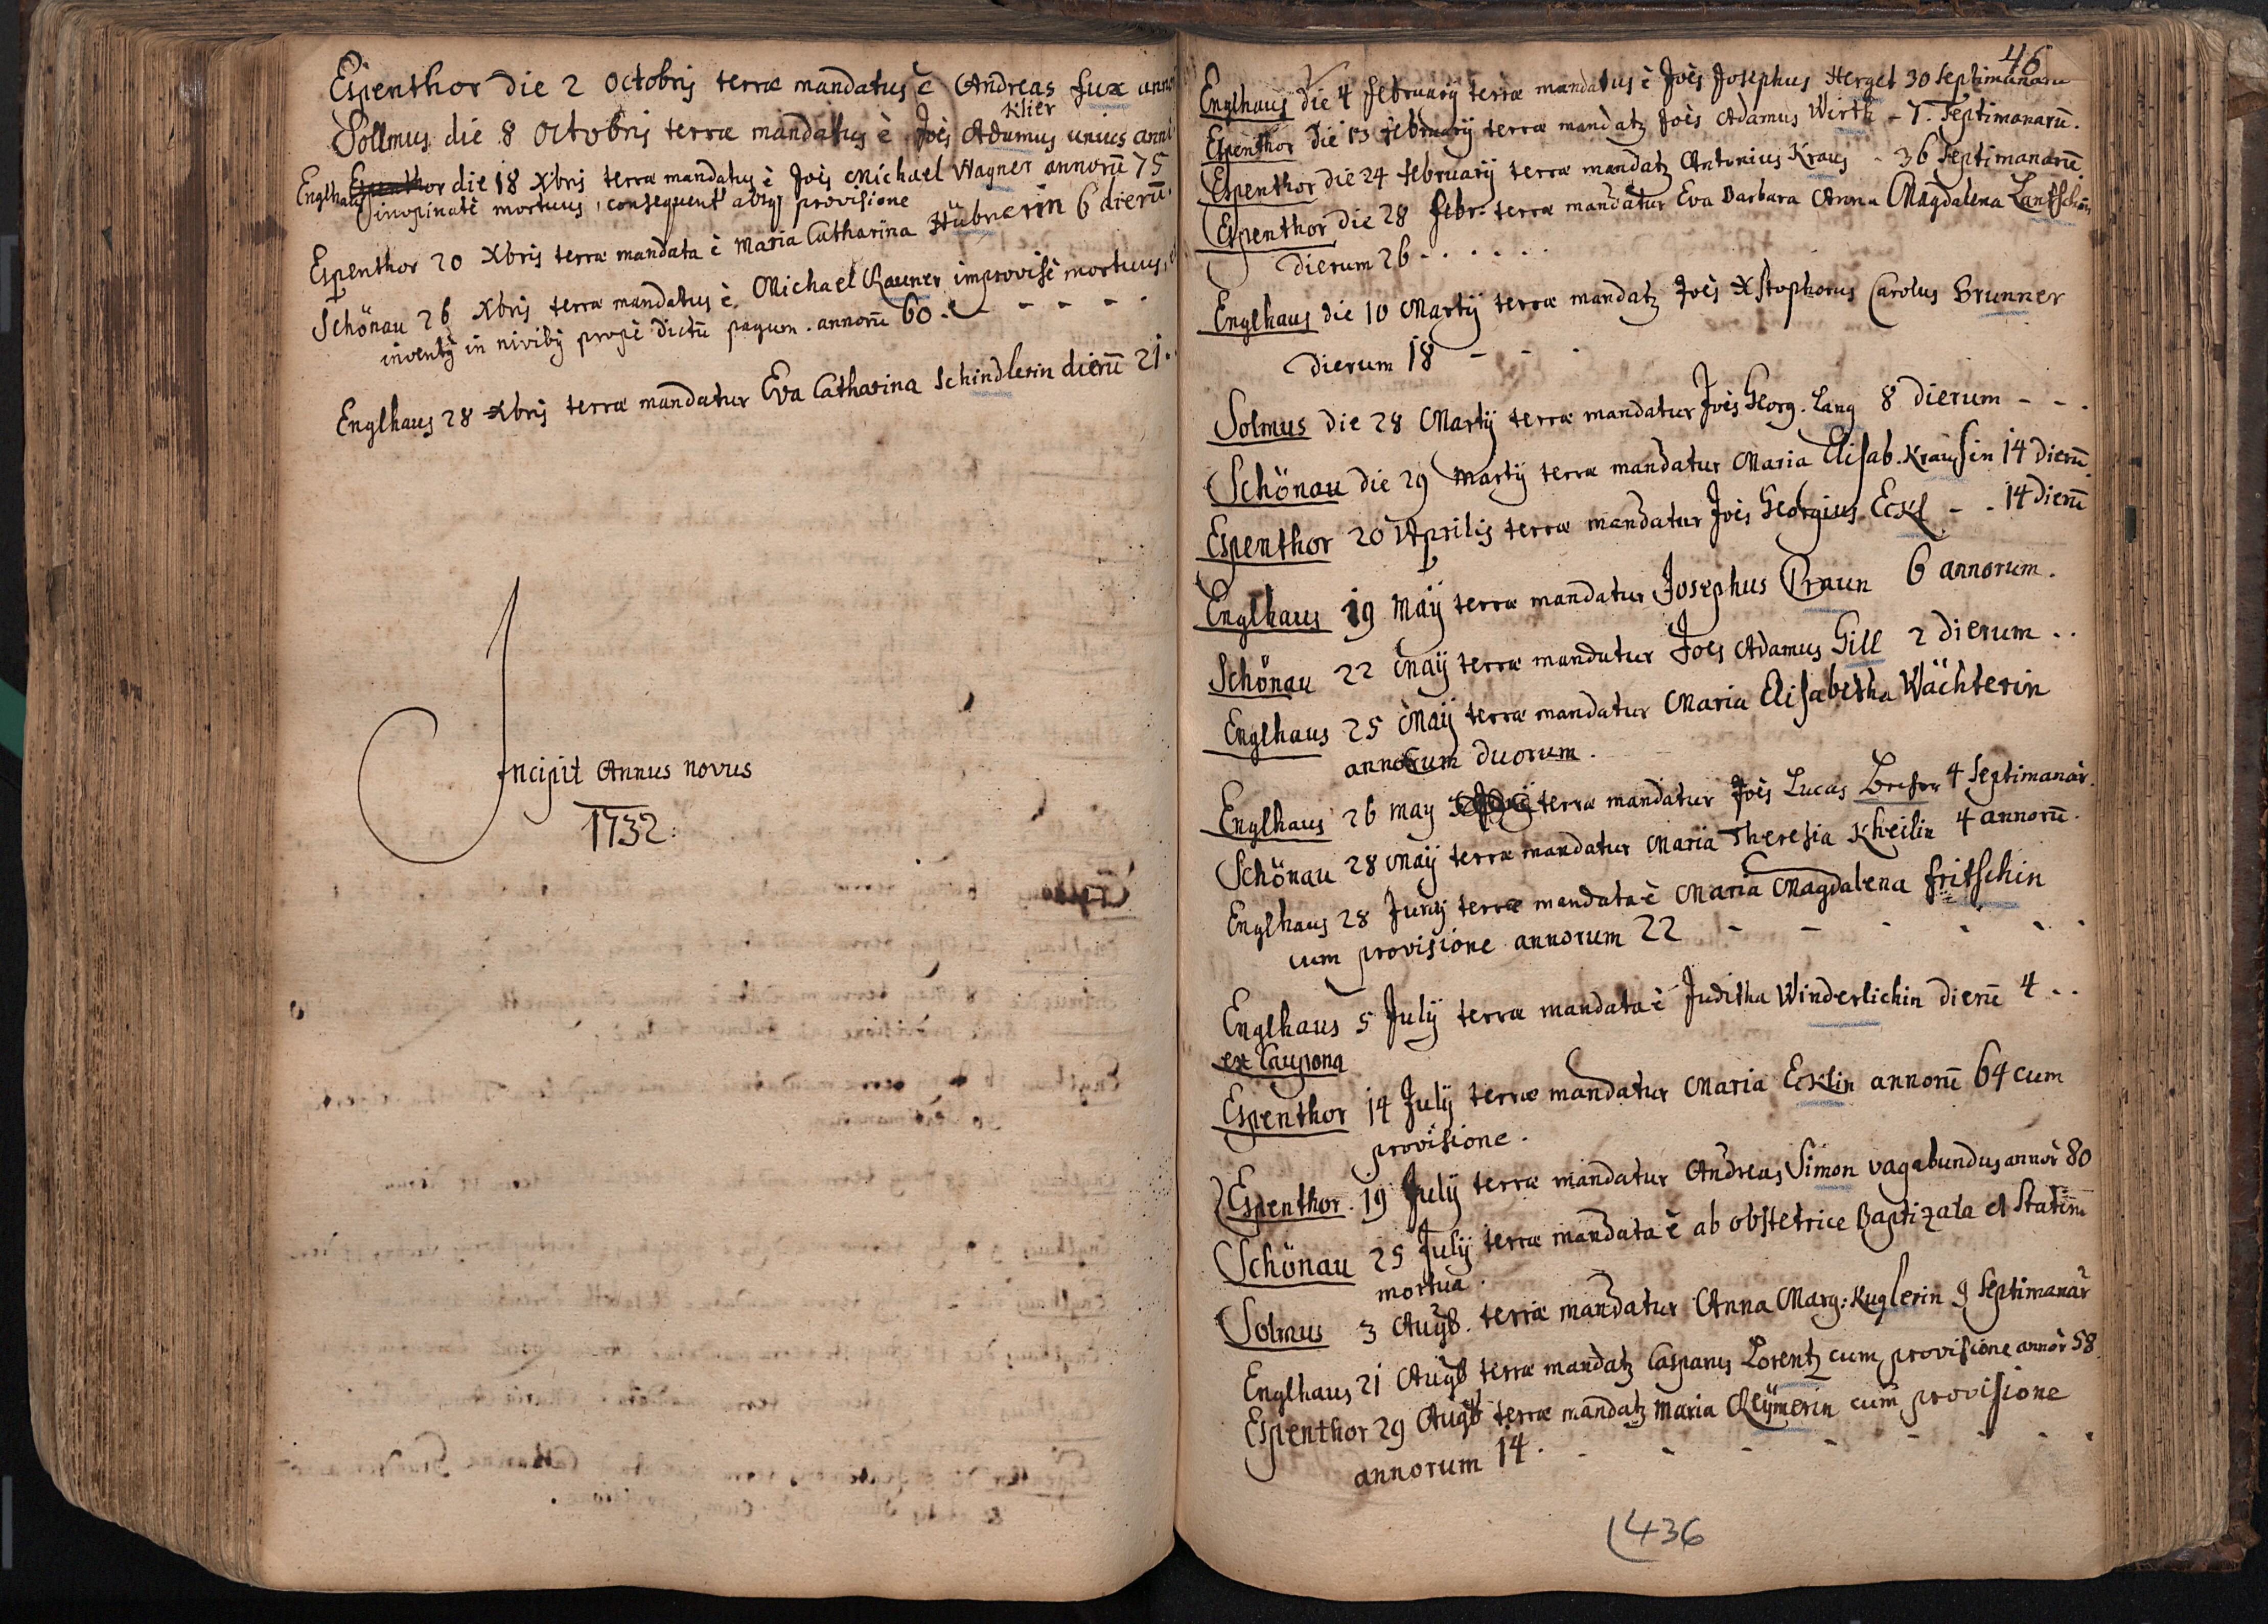 Espenthor die 2 Octobris terræ mandatus è Andreas Fux anno
Klier
Sollmus die 8 Octobris terræ mandatus è Joẽs Adamus unius anni
Englhaus Espenthor die 18 Xbris terræ mandatus è Joẽs Michael Wagner annorũ 75
inopinatè mortuus, consequent absq provisione
Espenthor 20 Xbris terræ mandata è Maria Catharina Hübnerin 6 dierũ
Schönau 26 Xbris terræ mandatus è Michael Rauner improvisè mortuus,
inventq in nivibq propè dictũ pagum. annorũ 60. - - - -
Englhaus 28 Xbris terræ mandatur Eva Catharina Schindlerin dierũ 21.
Incipit Annus novus
1732:
46
Englhaus die 4 February terræ mandatus è Joẽs Josephus Herget 30 Septimanaru
Espenthor die 13 february terræ mandatz Joẽs Adamus Wirth - 7. Septimanarũ.
Espenthor die 24 february terræ mandatz Antonius Kraus - 36 Septimanarũ
Espenthor die 28 febr: terræ mandatur Eva Barbara Anna Magdalena
dierum 26 . . . . . .
Englhaus die 10 Martij terræ mandatz Joẽs Xstophorus Carolus Brunner
dierum 18 - - .
Solmus die 28 Martij terræ mandatur Joẽs Georg. Lang 8 dierum - - .
Schönau die 29 Martij terræ mandatur Maria Elisab. Krausin 14 dierũ
Espenthor 20 Aprilis terræ mandatur Joẽs Georgius Eckl - - 14 dierũ
Englhaus 19 Maÿ terræ mandatur Josephus Braun 6 annorum.
Schönau 22 Maij terræ mandatur Joẽs Adamus Gill 2 dierum . .
Englhaus 25 Maij terræ mandatur Maria Elisabetha Wächterin
annorum duorum.
Englhaus 26 May terræ mandatur Joẽs Lucas 4 Septimanar.
Schönau 28 Maij terræ mandatur Maria Theresia Kheilin 4 annorũ.
Englhaus 28 Junij terræ mandata è Maria Magdalena fritschin
cum provisione annorum 22 - - - - - -
Englhaus 5 Julij terræ mandata è Juditha Winderlichin dierũ 4 . .
ex Caupona
Espenthor 14 Julij terræ mandatur Maria Ecklin annorũ 64 cum
provisione.
Espenthor. 19 Julij terræ mandatur Andreas Simon vagabundus annor 80
Schönau 25 Julij terræ mandata è ab obstetrice Baptizata et Statim
mortua.
Solmus 3 Augb. terræ mandatur Anna Marg: Kuglerin 9 Septimanar
Englhaus 21 Augb terræ mandatz Casparus Lorentz cum provisione annor 58.
Espenthor 29 Augb terræ mandatz Maria Reÿmerin cum provisione
annorum 14. - - - - - - -
436